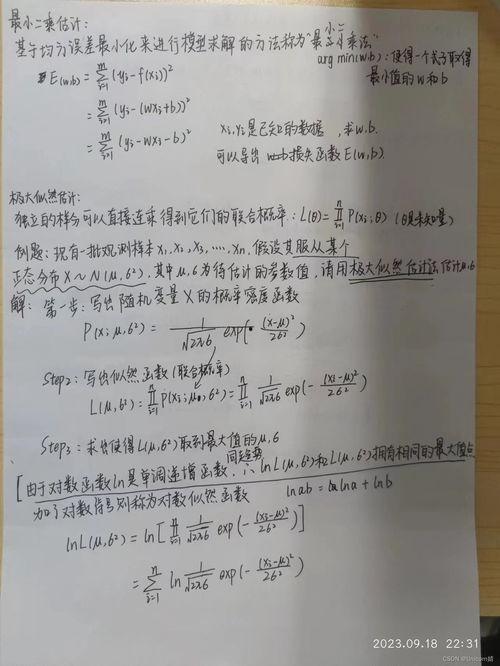 最小二乘估计:
基于均方误差最小化来进行模型求解的方法称为"最小二乘法"
arg min(w.b): 使得一个式子取得
最小值的w和b
E(w.b) = Σ_{i=1}^{m} (yᵢ-f(xᵢ))²
= Σ_{i=1}^{m} (yᵢ-(wxᵢ+b))²
= Σ_{i=1}^{m} (yᵢ-wxᵢ-b)²
xᵢ,yᵢ是已知的数据, 求w.b.
可以导出 损失函数E(w,b).
极大似然估计:
独立的样分可以直接连乘得到它们的联合概率: L(θ)=∏_{i=1}^{n} P(xᵢ;θ) (θ是未知量)
例题: 现有一批观测样本x₁,x₂,x₃,....,xₙ, 假设其服从某个
正态分布X~N(μ,6²), 其中μ,6为待估计的参数值, 请用极大似然估计法估计μ.6
解: 第一步: 写出随机变量X的概率密度函数
P(x;μ,6²) = 1/√2π6 exp(- (x-μ)²/26²)
Step2: 写出似然函数(联合概率)
L(μ,6²) = ∏_{i=1}^{n} P(xᵢ;μ,6²) = ∏_{i=1}^{n} 1/√2π6 exp(- (xᵢ-μ)²/26²)
Step3: 求出使得L(μ,6²)取到最大值的μ,6
[由于对数函数ln是单调递增函数, ∴ lnL(μ,6²)和L(μ,6²)拥有相同的最大值点
加了对数符号则称为对数似然函数 lnab = lna + lnb
lnL(μ,6²) = ln[∏_{i=1}^{n} 1/√2π6 exp(- (xᵢ-μ)²/26²)]
= Σ_{i=1}^{n} ln 1/√2π6 exp(- (xᵢ-μ)²/26²)
2023.09.18 22:31